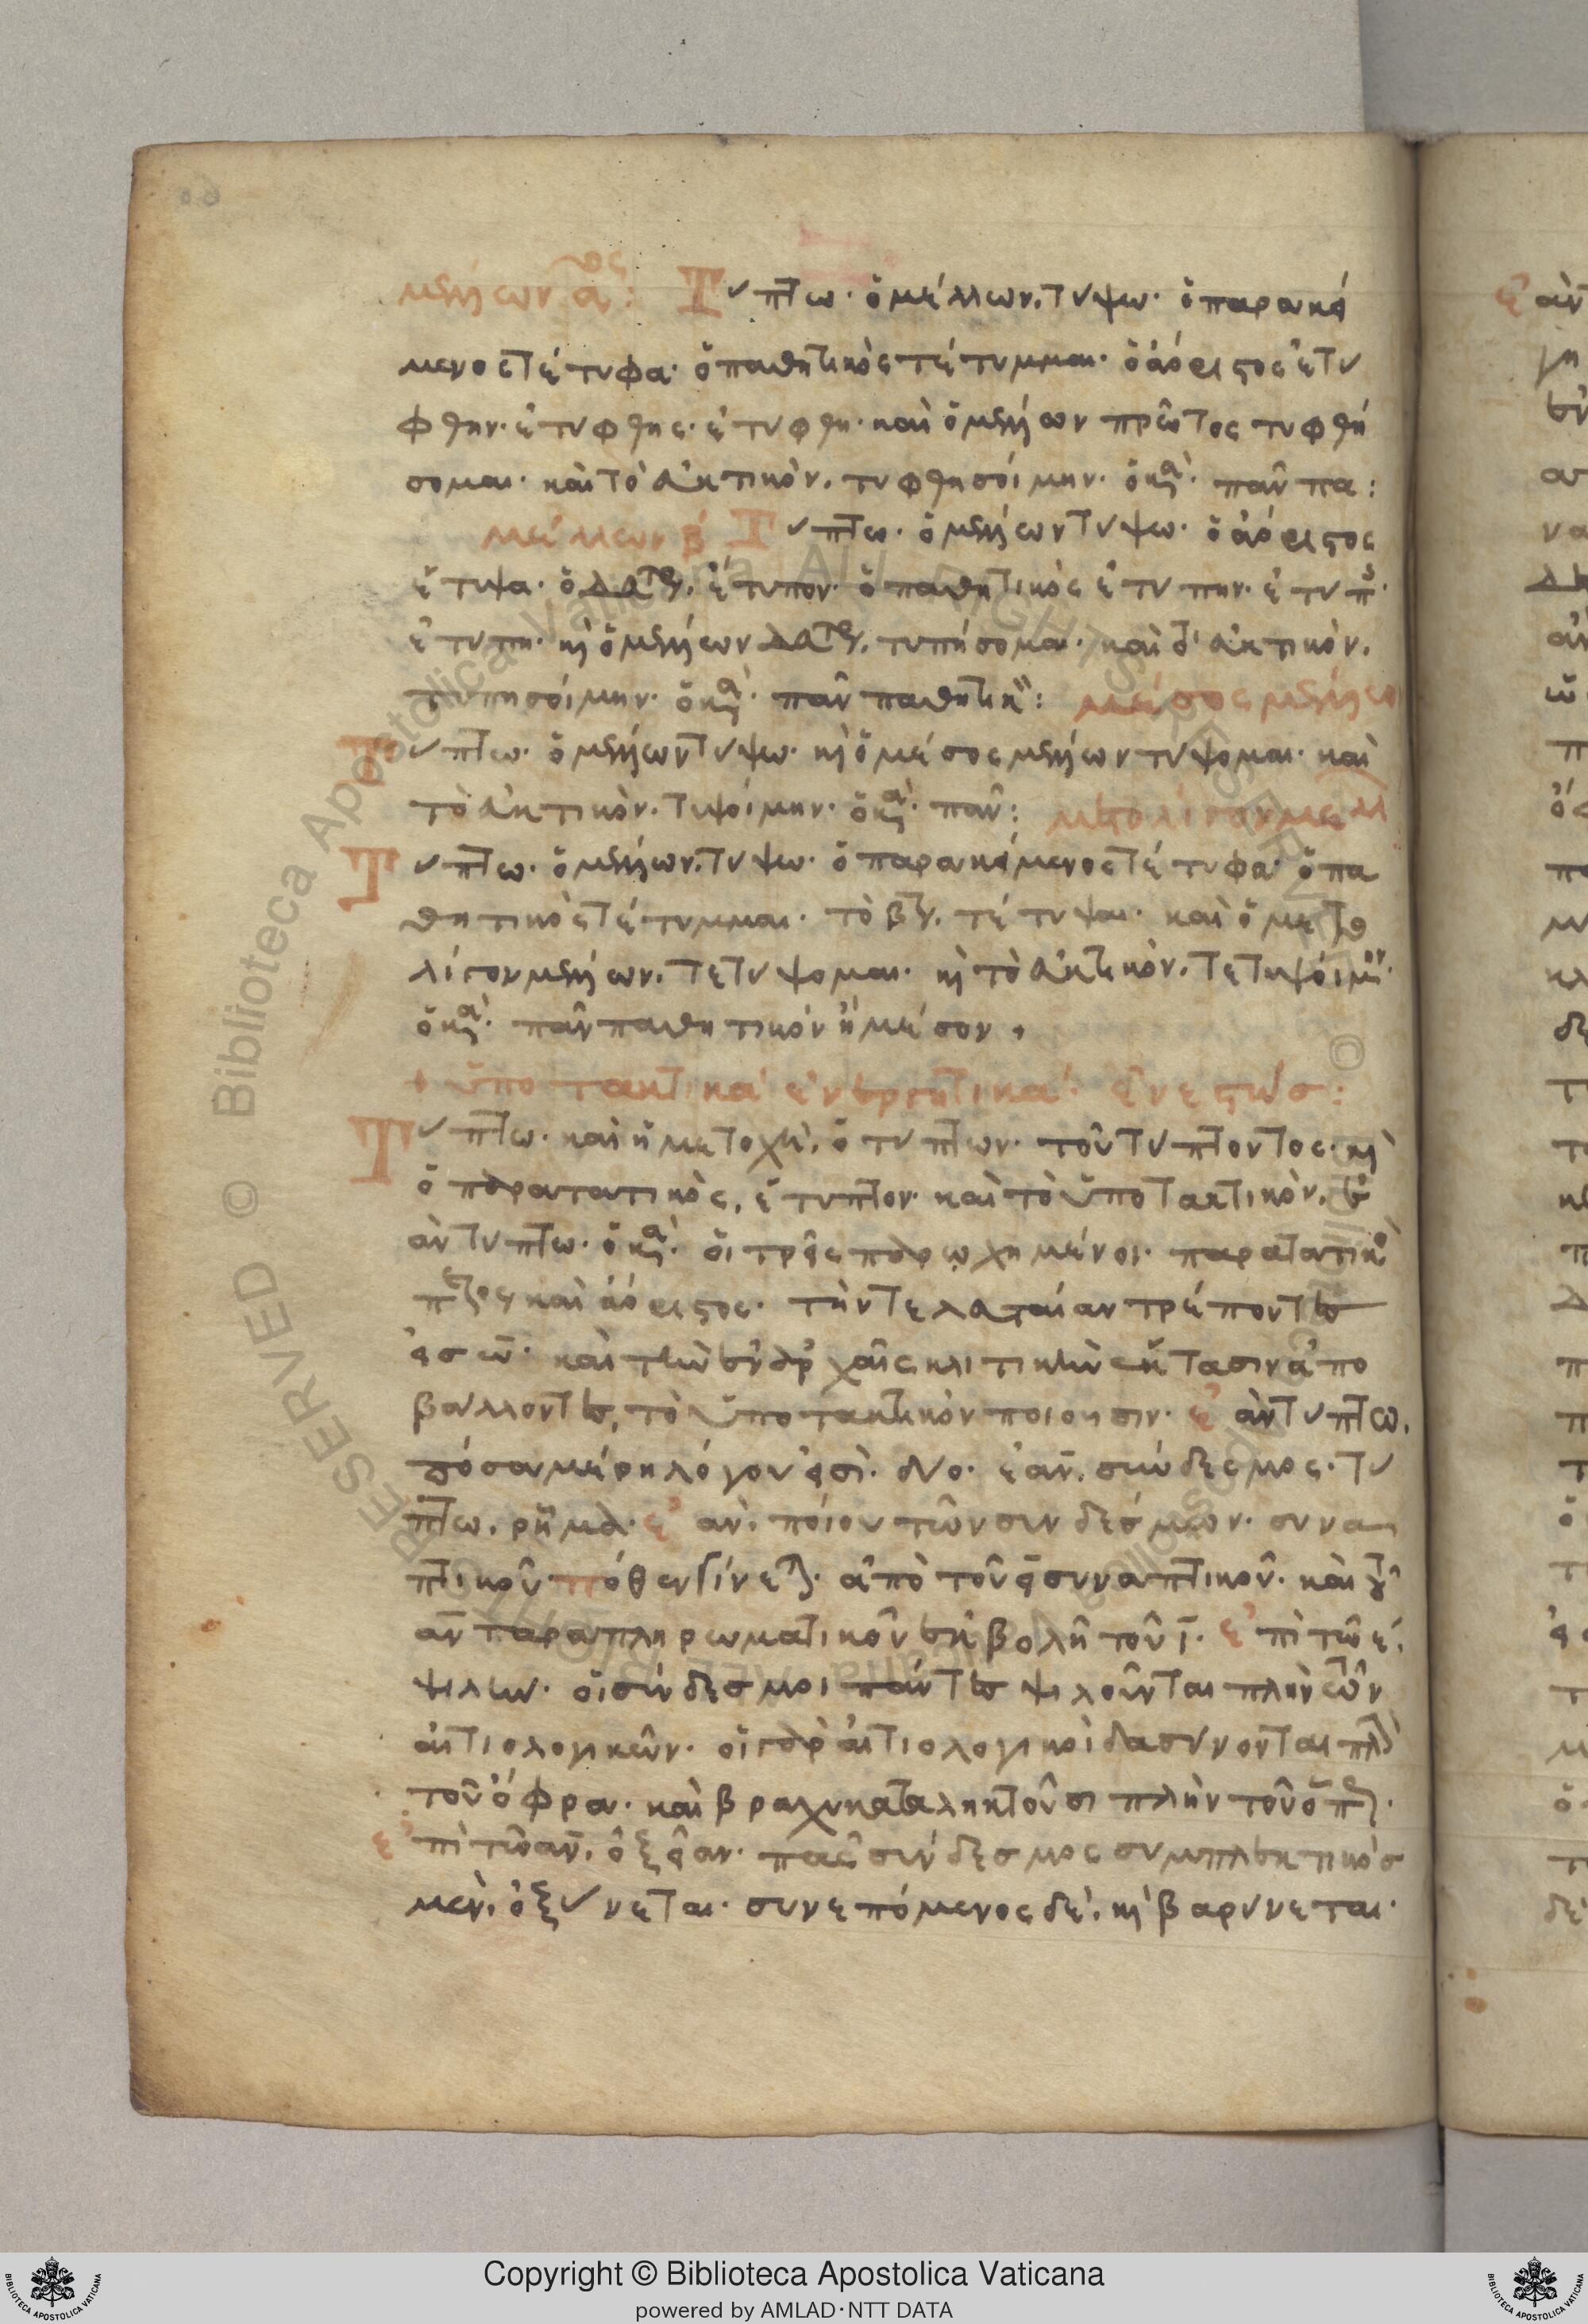 μέλλων αος: Τύπτω· ὁ μέλλων, τύψω· ὁ παρακεί
μενος τέτυφα· ὁ παθητικὸς τέτυμμαι· ὁ ἀόριστος ἐτύ
φθην· ἐτύφθης· ἐτύφθη· καὶ ὁ μέλλων πρῶτος τυφθή
σομαι· καὶ τὸ εὐκτικὸν, τυφθησοίμην· ὁ κα· παν πα:
μέλλων β Τύπτω· ὁ μέλλων τύψω· ὁ ἀόριστος
ἔτυψα· ὁ δεύτερος, ἔτυπον· ὁ παθητικὸς ἐτύπην· ἐτύπης·
ἐτύπη· καὶ ὁ μέλλων δεύτερος, τυπήσομαι· καὶ τὸ εὐκτικὸν,
τυπησοίμην· ὁ κα· παν παθητικ: μέσος μέλλων
Τύπτω· ὁ μέλλων τύψω· καὶ ὁ μέσος μέλλων τύψομαι· καὶ
τὸ εὐκτικὸν, τυψοίμην· ὁ κα· παν: μετ ὀλίγον μελλ
Τύπτω· ὁ μέλλων, τύψω· ὁ παρακείμενος τέτυφα· ὁ πα
θητικὸς τέτυμμαι· τὸ β, τέτυψαι· καὶ ὁ μετ ὀ
λίγον μέλλων, τετύψομαι· καὶ τὸ εὐκτικὸν, τετυψοίμην·
ὁ κα· παν παθητικόν ἢ μέσον,
+ ὑποτακτικὰ ἐνεργητικά: ἐνεστώς:
Τύπτω· καὶ ἡ μετοχὴ, ὁ τύπτων· τοῦ τύπτοντος· καὶ
ὁ παρατατικὸς, ἔτυπτον· καὶ τὸ ὑποτακτικὸν, ἐ
ὰν τύπτω· ὁ κα· οἱ τρεῖς παρῳχημένοι· παρατατικὸ
καὶ ἀόριστος· τὴν τελευταίαν τρέποντες
εἰς ω· καὶ τὴν ἐν ἀρχαῖς κλιτικὴν ἔκτασιν ἀπο
βάλλοντες, τὸ ὑποτακτικὸν ποιοῦσιν· ἐὰν τύπτω,
πόσα μέρη λόγου εἰσὶ· δύο· ἐὰν, σύνδεσμος· τύ
πτω, ῥῆμα· ἐὰν, ποίου τῶν συνδέσμων· συνα
πτικοῦ πόθεν γίνεται· ἀπὸ τοῦ εἰ συναπτικοῦ· καὶ τοῦ
αν παραπληρωματικοῦ ἐκβολῇ τοῦ ι· ἐπὶ τῶ ε,
ψιλὴν· οἱ σύνδεσμοι πάντες ψιλοῦνται πλὴν τῶν
αἰτιολογικῶν· οἱ γὰρ αἰτιολογικοὶ δασύνονται πλὴν
τοῦ ὄφρα· καὶ βραχυκαταληκτοῦσι πλὴν τοῦ ὅπως·
ἐπὶ τῶ αν, ὀξεῖαν· πᾶς σύνδεσμος συμπλεκτικὸς
μὲν, ὀξύνεται· συνεπόμενος δὲ, καὶ βαρύνεται·
Copyright © Biblioteca Apostolica Vaticana
powered by AMLAD·NTT DATA